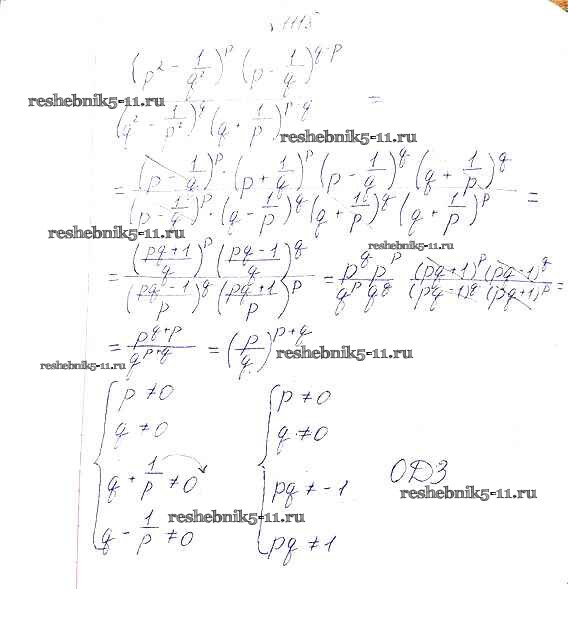 1115
(p² - 1/q²)^p (p - 1/q)^(q-p)
reshebnik5-11.ru
(q² - 1/p²)^q (q + 1/p)^(p-q) =
reshebnik5-11.ru
= (p - 1/q)^p · (p + 1/q)^p (p - 1/q)^q (q + 1/p)^q
(p - 1/q)^p · (q - 1/p)^q (q + 1/p)^q (q + 1/p)^p =
reshebnik5-11.ru
reshebnik5-11.ru
= ((pq+1)/q)^p ((pq-1)/q)^q / ((pq-1)/p)^q ((pq+1)/p)^p = p^q p^p / q^p q^q (pq+1)^p (pq-1)^q / (pq-1)^q (pq+1)^p =
= p^(q+p) / q^(p+q) = (p/q)^(p+q)
reshebnik5-11.ru
reshebnik5-11.ru
p ≠ 0 p ≠ 0
q ≠ 0 q ≠ 0
q + 1/p ≠ 0 pq ≠ -1 ОДЗ
reshebnik5-11.ru
reshebnik5-11.ru
q - 1/p ≠ 0 pq ≠ 1